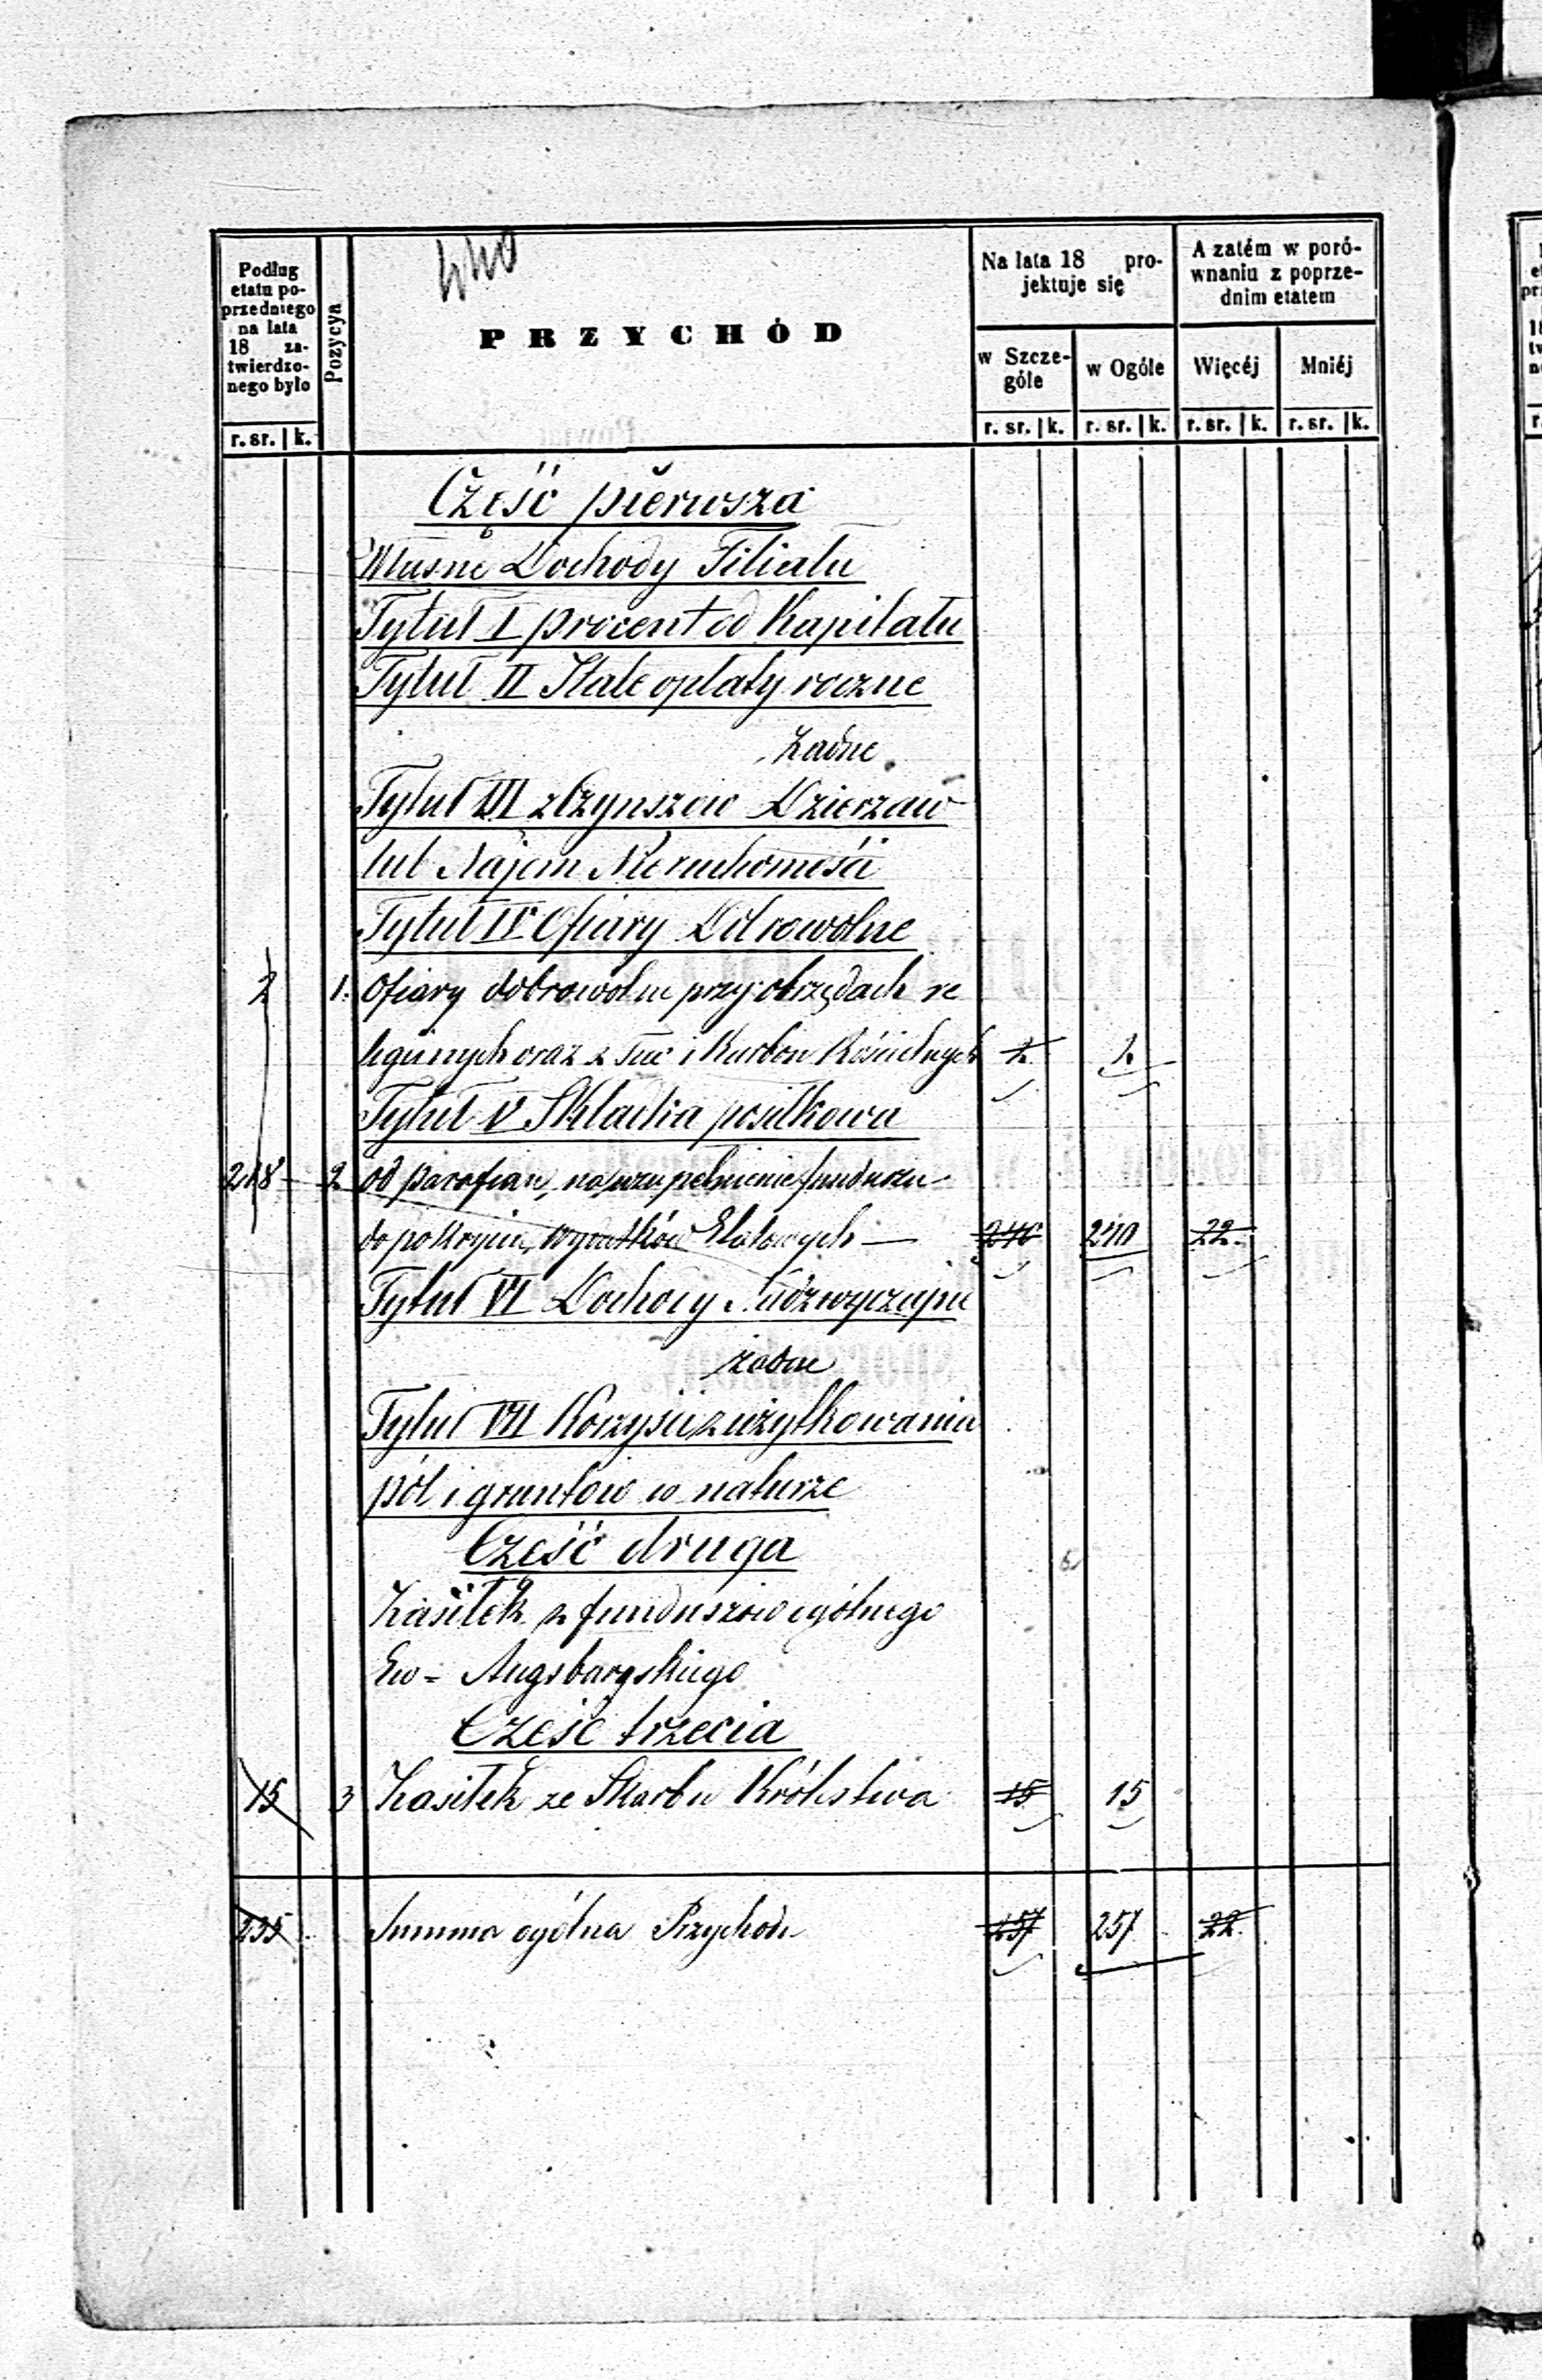 440
Podług
etatu po-
przedniego
na lata
18 za-
twierdzo-
nego było
Pozycya
PRZYCHÓD
Na lata 18 pro-
jektuje się
A zatém w poró-
wnaniu z poprze-
dnim etatem
w Szcze-
góle
w Ogóle
Więcéj
Mniéj
r. sr. k. r. sr. k. r. sr. k. r. sr. k. r. sr. k.
Część pierwsza
Własne Dochody Filiału
Tytuł I procent od Kapitału
Tytuł II Stałe opłaty roczne
żadne
Tytuł III z Czynszów Dzierżaw
lub Najem Nieruchomości
Tytuł IV Ofiary Dobrowolne
2 1. Ofiary dobrowolne przy obrzędach re
ligijnych oraz z Tac i Karbon Kościelnych 2 2
Tytuł V Składka posiłkowa
218 2 od parafian, na uzupełnienie funduszu
do pokrycia, wydatków Etatowych — 240 240 22
Tytuł VI Dochody Nadzwyczajne
żadne
Tytuł VII Korzyści z użytkowania
pól i gruntów w naturze
Cześć druga
Zasiłek z funduszów ogólnego
Ew= Augsburgskiego
Cześć trzecia
15 3 Zasiłek ze Skarbu Królestwa 15 15
235 Summa ogólna Przychodu 257 257 22